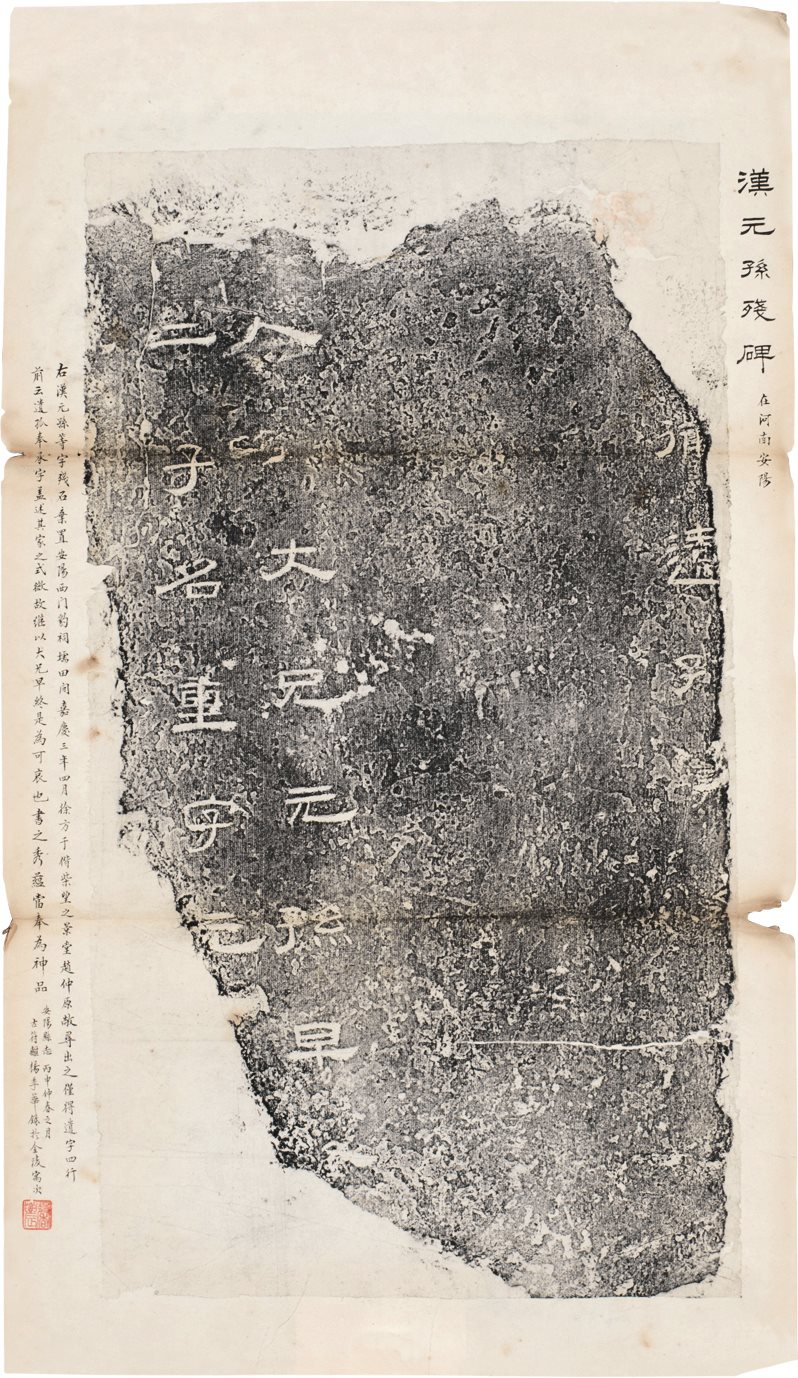 漢元孫殘碑
在河南安陽
遺孤
大兄元孫早
二子名重字元
右漢元孫等字殘石棄置安陽西門豹祠墻田間嘉慶三年四月徐方于偕柴望之景堂趙仲原敬尋出之僅得遺字四行
前云遺孤奉承字蓋述其家之式微故繼以大兄早終是為可哀也書之秀蘊當奉為神品
安陽縣志 丙申仲春之月
古符離 季華錄於金陵寓次